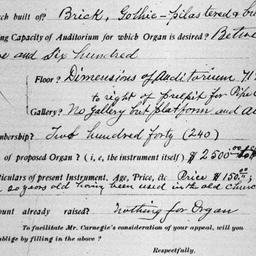 rch built of? Brick, Gothic - pilastered & bu
ing Capacity of Auditorium for which Organ is desired? Betwe
e and six hundred
Floor? Dimensions of Auditorium
to right of pulpit for Pipe
Gallery? No gallery but platform and al
mbership? Two hundred forty (240)
of proposed Organ? (i, e, the instrument itself) $2500
rticulars of present Instrument, Age, Price, &c Price $150.00;
20 years old having been used in the old church
ount already raised? Nothing for Organ
To facilitate Mr. Carnegie's consideration of your appeal, will you
oblige by filling in the above ?
Respectfully,